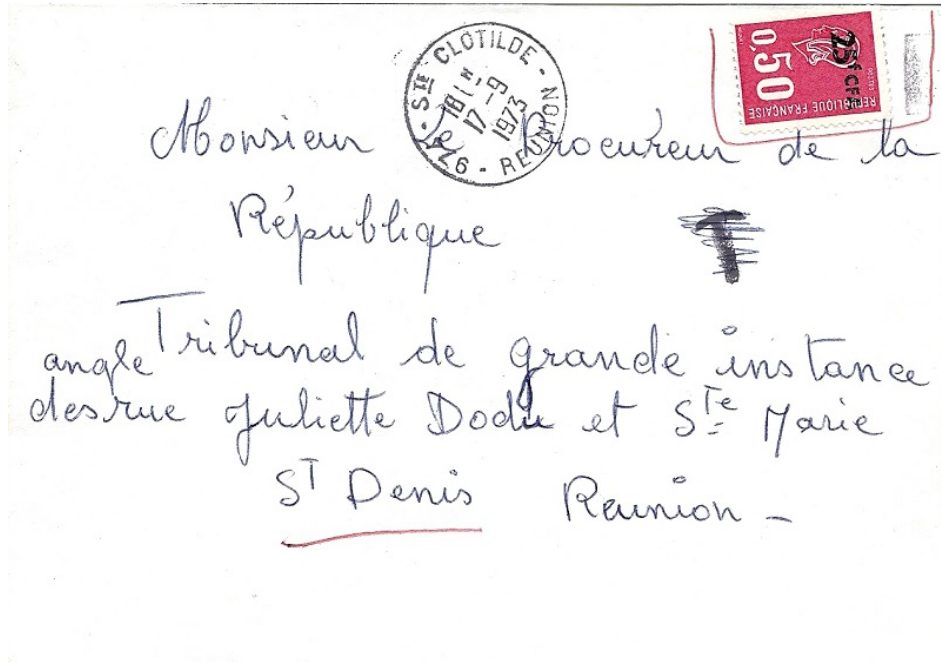 974 - STE CLOTILDE - REUNION
18H
17-9
1973
25f CFA
0,50
POSTES
REPUBLIQUE FRANÇAISE
Monsieur Le Procureur de la
République
T
Tribunal de grande instance
angle
des rue Juliette Dodu et Ste Marie
ST Denis Reunion -